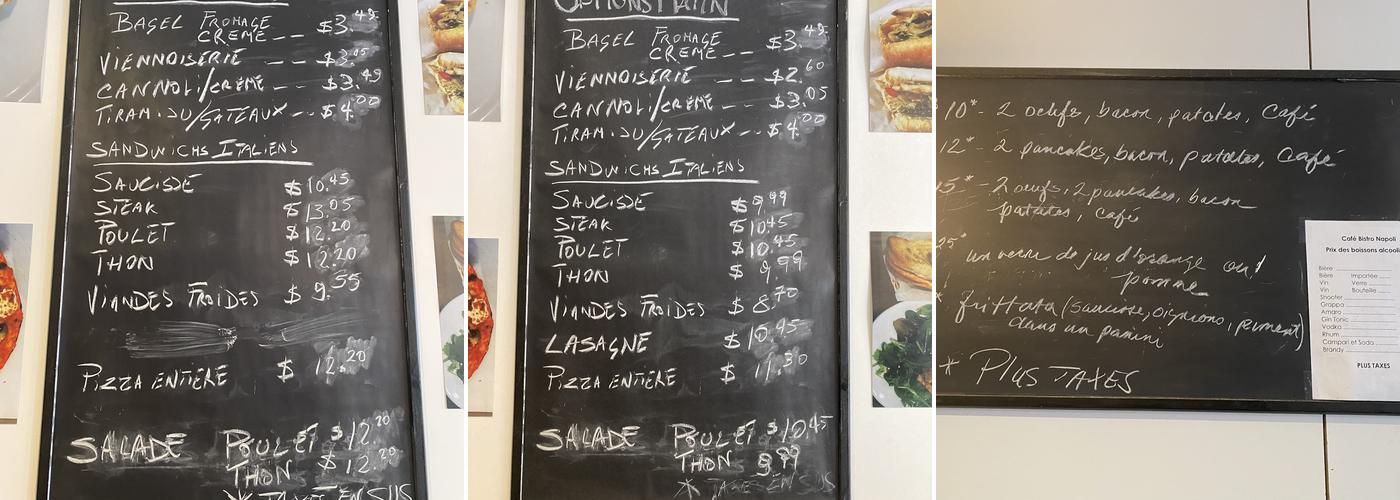 BAGEL FROMAGE
CREME -- $3.49
VIENNOISERIE -- $3.05
CANNOLI/CRÈME -- $3.49
TIRAMISU/GATEAUX -- $4.00
SANDWICHS ITALIENS
SAUCISSE $10.45
STEAK $13.05
POULET $12.20
THON $12.20
VIANDES FROIDES $9.55
PIZZA ENTIÈRE $12.20
SALADE POULET $12.20
THON $12.20
* TAXES EN SUS
OPTIONS MATIN
BAGEL FROMAGE
CREME -- $3.49
VIENNOISERIE -- $2.60
CANNOLI/CRÈME -- $3.05
TIRAMISU/GATEAUX -- $4.00
SANDWICHS ITALIENS
SAUCISSE $9.99
STEAK $10.45
POULET $10.45
THON $9.99
VIANDES FROIDES $8.70
LASAGNE $10.45
PIZZA ENTIÈRE $11.30
SALADE POULET $10.45
THON 9.99
* TAXES EN SUS
10* - 2 oeufs, bacon, patates, Café
12* - 2 pancakes, bacon, patates, Café
5* - 2 oeufs, 2 pancakes, bacon
patates, café
25* un verre de jus d'orange ou
pomme
* frittata (saucisse, oignons, piment)
dans un panini
* PLUS TAXES
Café Bistro Napoli
Prix des boissons alcooli
Bière
Bière Importée
Vin Verre
Vin Bouteille
Shooter
Grappa
Amaro
Gin Tonic
Vodka
Rhum
Campari et Soda
Brandy
PLUS TAXES